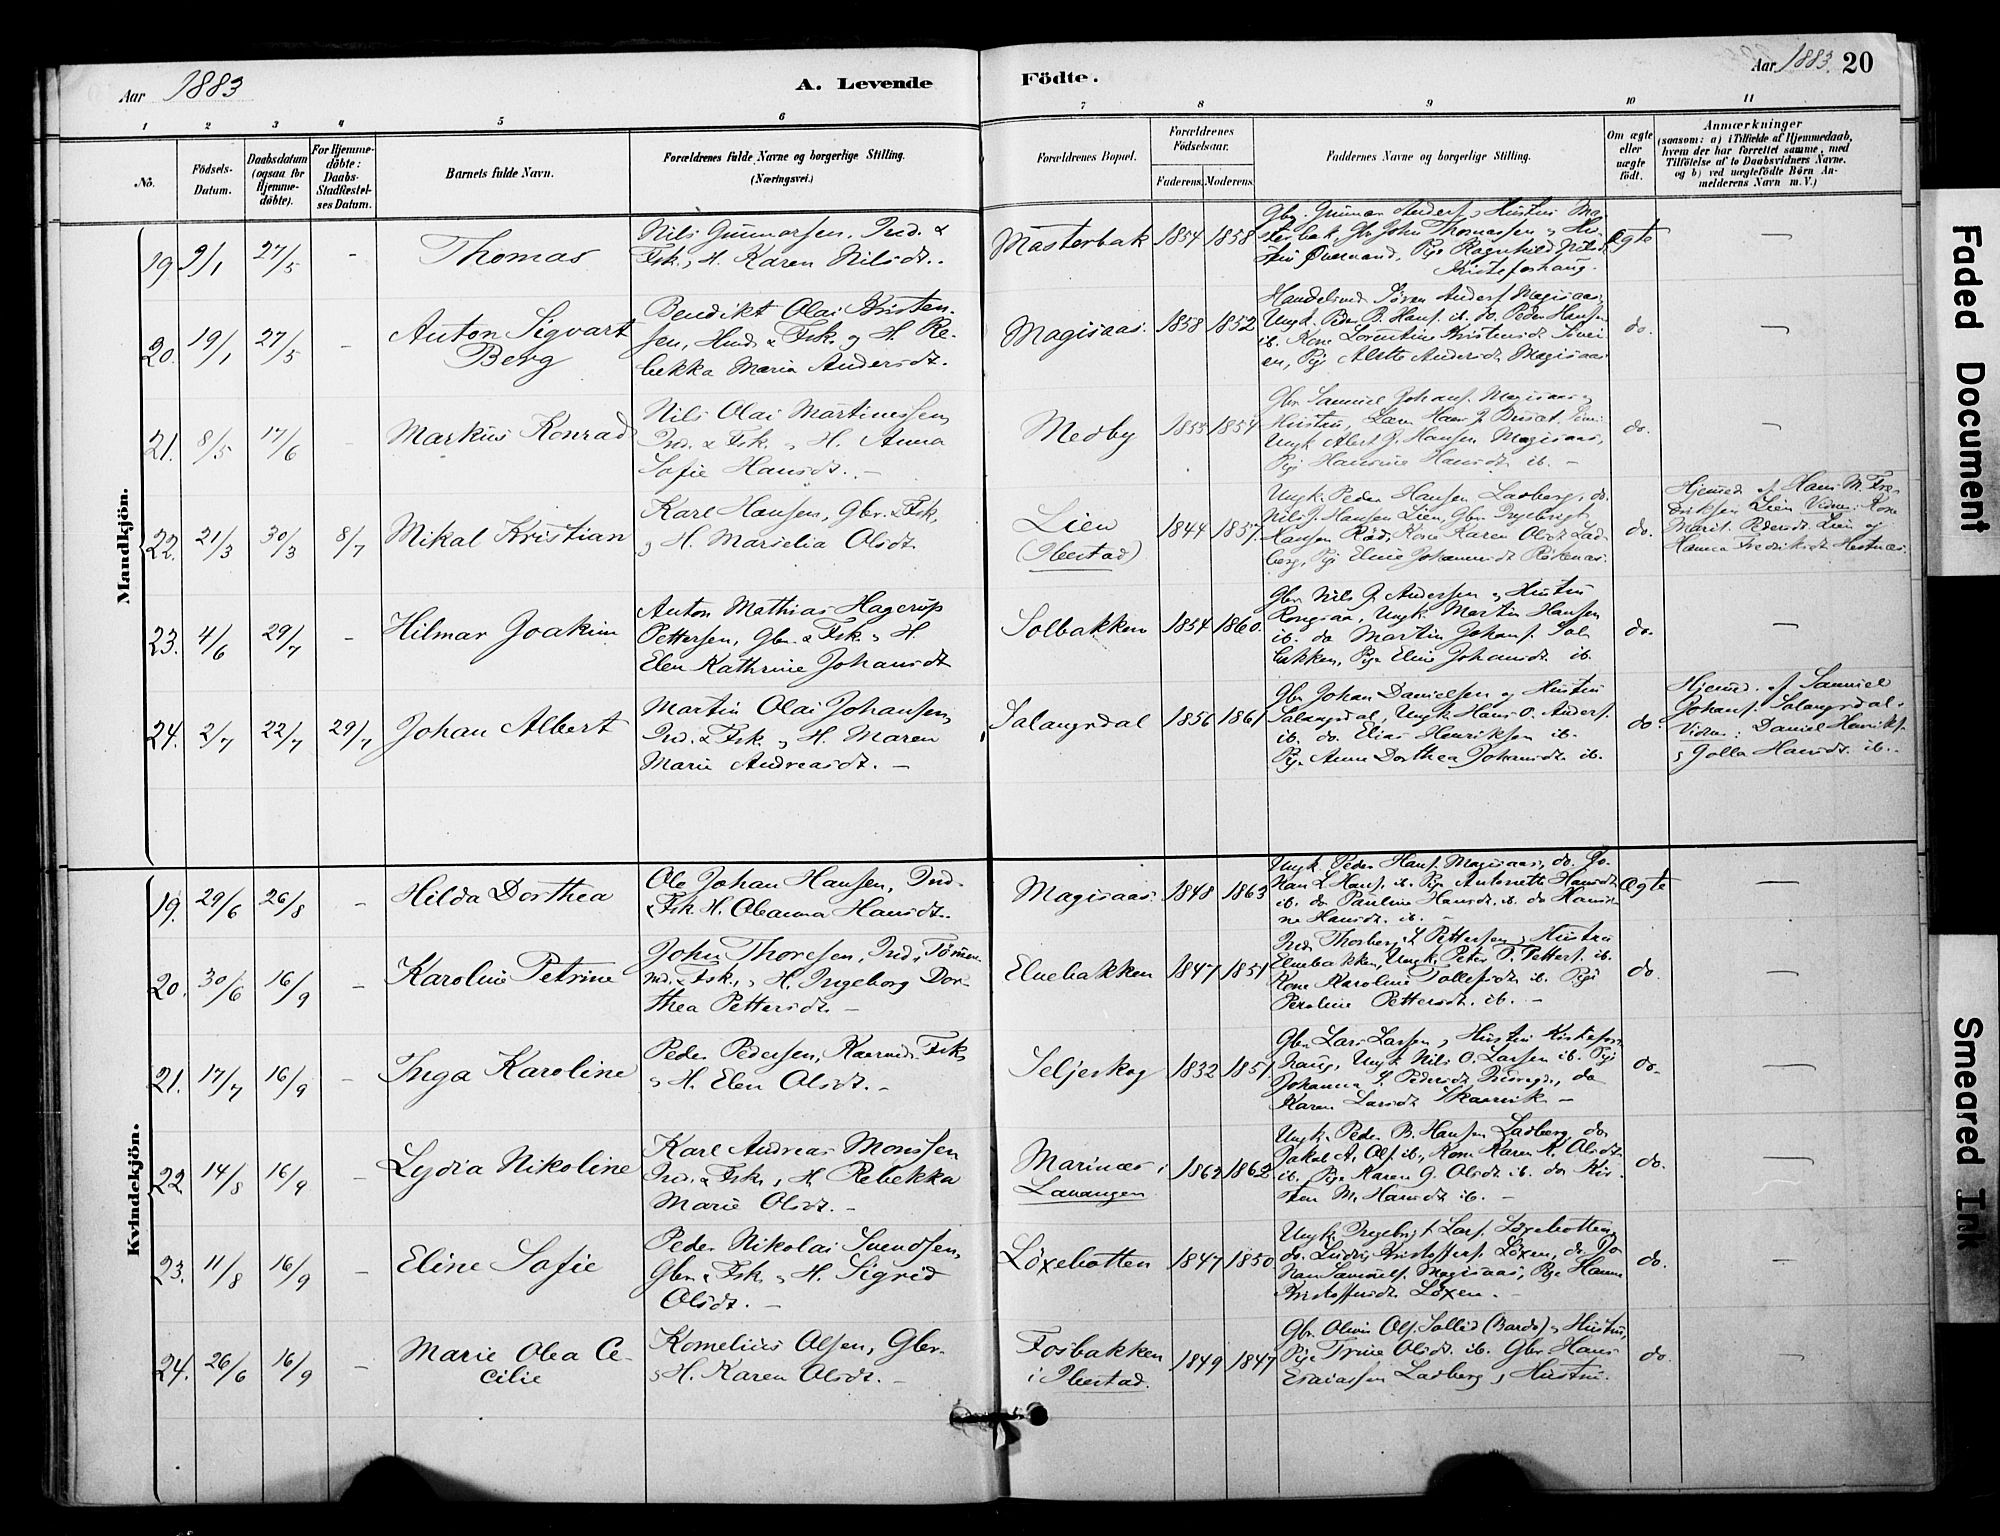 Aar 1883
A. Levende
Födte.
Aar 1883. 20
1 2 3 4 5 6 7 8 9 10 11
No.
Födsels-
Datum.
Daabsdatum
(ogsaa for
Hjemme-
döbte).
For Hjemme-
döbte:
Daabs-
Stadfæstel-
ses Datum.
Barnets fulde Navn.
Forældrenes fulde Navne og borgerlige Stilling.
(Næringsvei.)
Forældrenes Bopæl.
Forældrenes
Födselsaar.
Faderens. Moderens.
Faddernes Navne og borgerlige Stilling.
Om ægte
eller
uægte
født.
Anmærkninger
(saasom: a) i Tilfælde af Hjemmedaab,
hvem der har forrettet samme, med
Tilföielse af to Daabsvidners Navne,
og b) ved uægtefödte Börn An-
melderens Navn m. V.)
Mandkjön.
19 9/1 27/5 - Thomas
Nils Gunnarsen, Ind. &
Fsk., H. Karen Nilsdt.
Masterbak 1854 1858
Gbr. Gunnar Anders. & Hustru Ma-
sterbak, Gbr John Thomassen & Hu-
stru Øvervand, Pige Ragnhild Nilsdt
Kisteforhaug.
Ægte —
20. 19/1 27/5 - Anton Sigvart
Berg
Benedikt Olai Kristen-
sen, Hmd. & Fsk. & H. Re-
bekka Maria Andersdt.
Magisaas. 1858 1852
Handelsmd Søren Anders. Magisaas,
Ungk. Peder B. Hans. ib. do. Peder Hansen
ib. Kone Lorentine Kristensdt
en, Pige Aletta Andersdt. Magisaas
do. —
21. 8/5 17/6 - Markus Konrad
Nils Olai Martinessen,
Ind. & Fsk. & H. Anna
Sofie Hansdt. —
Medby 1853 1854
Gbr. Samuel Johans. Magisaas &
Hustru,
Ungk Albert J. Hansen Magisaas,
Pige Hansine Hansdt ib. —
do. —
22. 21/3 30/3 8/7 Mikal Kristian
Karl Hansen, Gbr. & Fsk.
& H. Marselia Olsdt
Lien
(Ibestad) 1844 1857.
Ungk. Peder Hansen Ladberg, do.
Nils J. Hansen Lien, Gbr. Ingebrigt
Hansen Rød, Kone Karen Olsdt Lad-
berg, Pige Eline Johannesdt Røkenæs.
do.
Hjemmed. af Hans M. Fre-
driksen Lien Vidner: Kone
Marit Pedersdt. Lien og
Hanna Fredriksdt Hestnæs.
23. 4/6 29/7 - Hilmar Joakim
Anton Mathias Hagerup
Pettersen, Gbr. & Fsk. & H.
Elen Kathrine Johansdt
Solbakken 1854 1860.
Gbr. Nils J. Andersen & Hustru
Rongsaa, Ungk. Martin Hansen
ib. do Martin Johans. Sol-
bakken, Pige Eline Johansdt. ib.
do. —
24. 2/7 22/7 29/7 Johan Albert
Martin Olai Johansen,
Ind. & Fsk. & H. Maren
Marie Andreasdt. —
Salangsdal 1856 1861
Gbr Johan Danielsen og Hustru
Salangsdal, Ungk. Hans O. Anders.
ib. do. Elias Henriksen ib.
Pige Anne Dorthea Johansdt. ib.
do.
Hjemmd. af Samuel
Johans. Salangsdal.
Vidner: Daniel Henriks.
& Golla Hansdt. ib. -
Kvindekjön.
19. 29/6 26/8 - Hilda Dorthea
Ole Johan Hansen, Ind.
& Fsk H. Oleanna Hansdt.
Magisaas. 1848 1863
Ungk. Peder Hans. Magisaas, do. Jo-
han L. Hans. ib. Pige Antonette Hansdt
ib. do Pauline Hansdt. ib. do Hansi-
ne Hansdt. ib. —
Ægte —
20. 30/6 16/9 - Karoline Petrine
John Thoresen, Ind., Tømmer-
md. & Fsk., & H. Ingeborg Dor-
thea Pettersdt. —
Elvebakken 1847 1851
Ind. Thorberg L. Pettersen & Hustru
Elvebakken, Ungk. Peter P. Petters. ib.
Kone Karoline Tollefsdt ib. Pige
Peroline Pettersdt. ib. —
do. —
21. 17/7 16/9 - Inga Karoline
Peder Pedersen, Kaarmd. Fsk.
& H. Elen Olsdt. —
Seljeskog 1832 1851
Gbr. Lars Larsen & Hustru Kistefor-
haug, Ungk Nils O. Larsen ib. Pige
Johanna S. Pedersdt do
Karen Larsdt Skaarvik —
do. —
22 14/8 16/9 - Lydia Nikoline
Karl Andreas Monssen
Ind. & Fsk., & H. Rebekka
Marie Olsdt. —
Marinæs i
Lavangen 1862 1862
Ungk. Peder B. Hansen Ladberg, do
Jakob A. Ols. ib., Kone Karen K. Olsdt.
ib. Pige Karen G. Olsdt ib. do Kir-
sten M. Hansdt ib. —
do. —
23. 11/8 16/9 - Eline Sofie
Peder Nikolai Svendsen,
Gbr. & Fsk. & H. Sigrid
Olsdt. —
Löxebotten 1847 1850
Ungk. Ingebrigt Lars. Löxebotten,
do. Ludvig Kristoffers. Löxen, do. Jo-
han Samuels. Magisaas, Pige Hanna
Kristoffersdt. Löxen. —
do. —
24. 26/6 16/9 - Marie Olea Ce-
cilie
Kornelius Olsen, Gbr.
& H. Karen Olsdt. —
Fosbakken
i Ibestad. 1849 1847
Gbr. Oluis Ols. Sollid (Bardo) & Hustru,
Pige Trine Olsdt. ib. Gbr. Hans
Esaiassen Ladberg & Hustru.
do. —
Faded Document
Smeared Ink